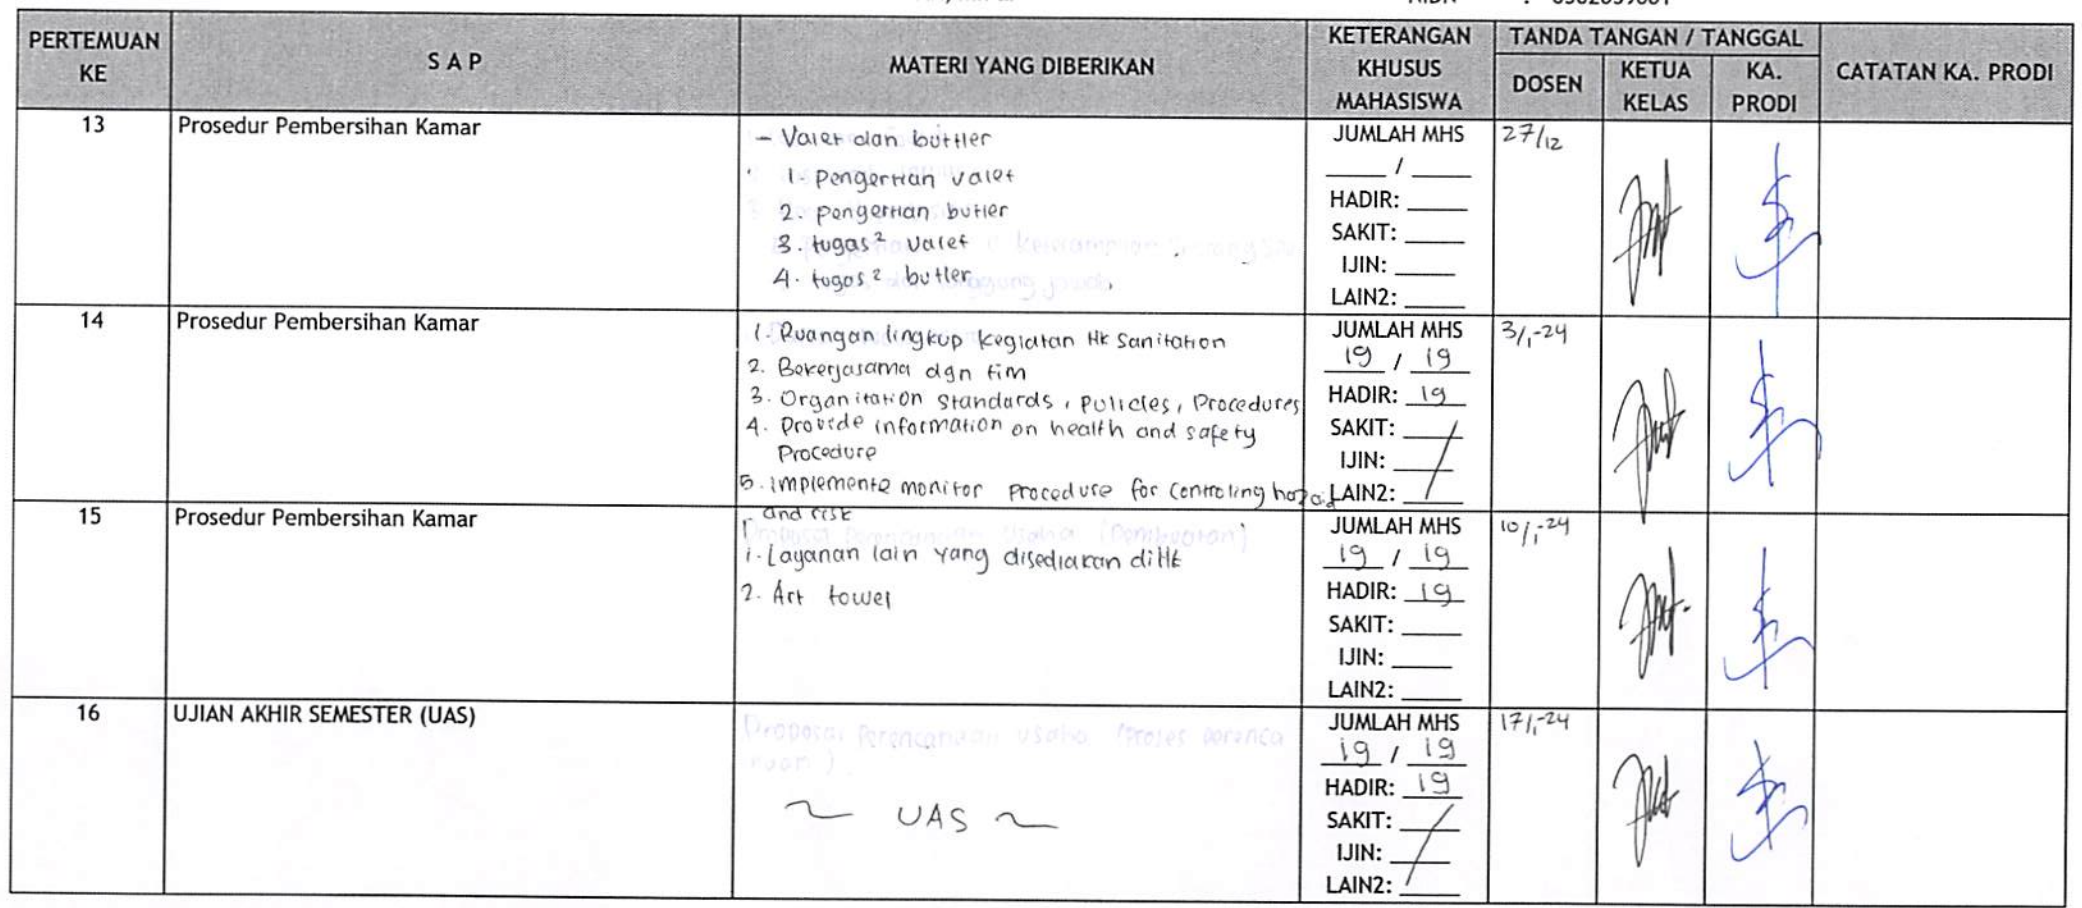 PERTEMUAN KE
S A P
MATERI YANG DIBERIKAN
KETERANGAN KHUSUS MAHASISWA
TANDA TANGAN / TANGGAL
DOSEN
KETUA KELAS
KA. PRODI
CATATAN KA. PRODI
13
Prosedur Pembersihan Kamar
- Valet dan buttler
1. Pengertian valet
2. pengertian butler
3. tugas² valet
4. tugas² butler
JUMLAH MHS
/
HADIR:
SAKIT:
IJIN:
LAIN2:
27/12
14
Prosedur Pembersihan Kamar
1. Ruangan lingkup kegiatan Hk Sanitation
2. Bekerjasama dgn tim
3. Organitation Standards, Policies, Procedures
4. Provide information on health and safety
Procedure
5. implemente monitor Procedure for Controling hazaid
and risk
JUMLAH MHS
19 / 19
HADIR: 19
SAKIT:
IJIN:
LAIN2:
3/1-24
15
Prosedur Pembersihan Kamar
1. Layanan lain yang disediakan di Hk
2. Art towel
JUMLAH MHS
19 / 19
HADIR: 19
SAKIT:
IJIN:
LAIN2:
10/1-24
16
UJIAN AKHIR SEMESTER (UAS)
~ UAS ~
JUMLAH MHS
19 / 19
HADIR: 19
SAKIT:
IJIN:
LAIN2:
17/1-24